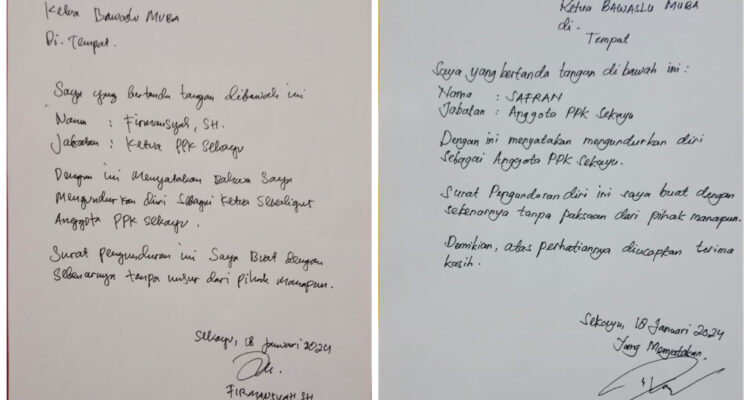 Ketua BAWASLU MUBA
Di. Tempat.
Saya yang bertanda tangan dibawah ini
Nama : Firmansyah, SH.
Jabatan : Ketua PPK Sekayu
Dengan ini Menyatakan Bahwa Saya
Mengundurkan diri Sebagai Ketua Sekaligus
Anggota PPK Sekayu.
Surat pengunduran ini Saya Buat dengan
Sebenarnya tanpa unsur dari pihak Manapun.
Sekayu, 18 Januari 2024
FIRMANSYAH SH
Ketua BAWASLU MUBA
di.
Tempat
Saya yang bertanda tangan di bawah ini :
Nama : SAFRAN
Jabatan : Anggota PPK Sekayu
Dengan ini menyatakan mengundurkan diri
sebagai Anggota PPK Sekayu.
Surat Pengunduran diri ini saya buat dengan
sebenarnya tanpa paksaan dari pihak manapun.
Demikian, atas perhatiannya diucapkan terima
kasih.
Sekayu, 18 Januari 2024
Yang Menyatakan,